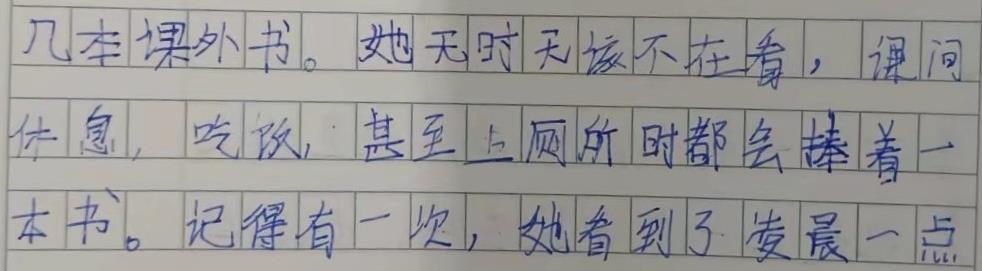 几本课外书。她无时无该不在看，课间
休息，吃饭，甚至上厕所时都会捧着一
本书。记得有一次，她看到了凌晨一点